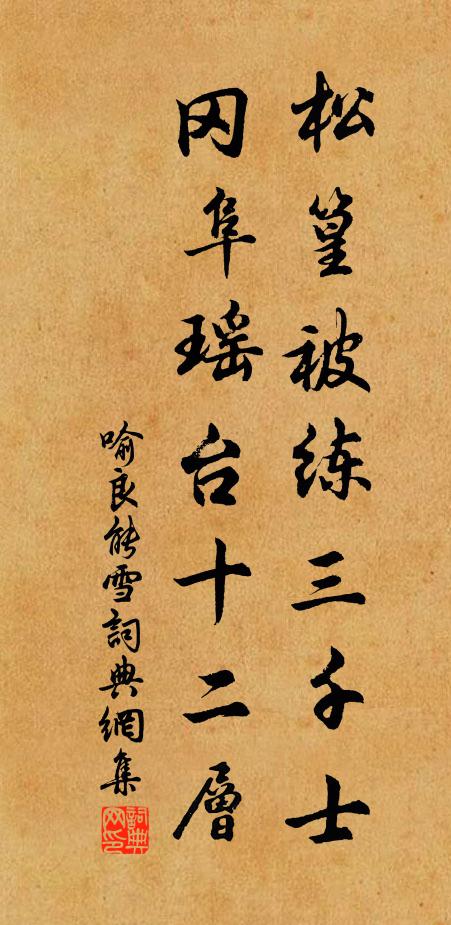 松篁被练三千士
冈阜瑶台十二層
喻良能雪詞典網集
詞典网印